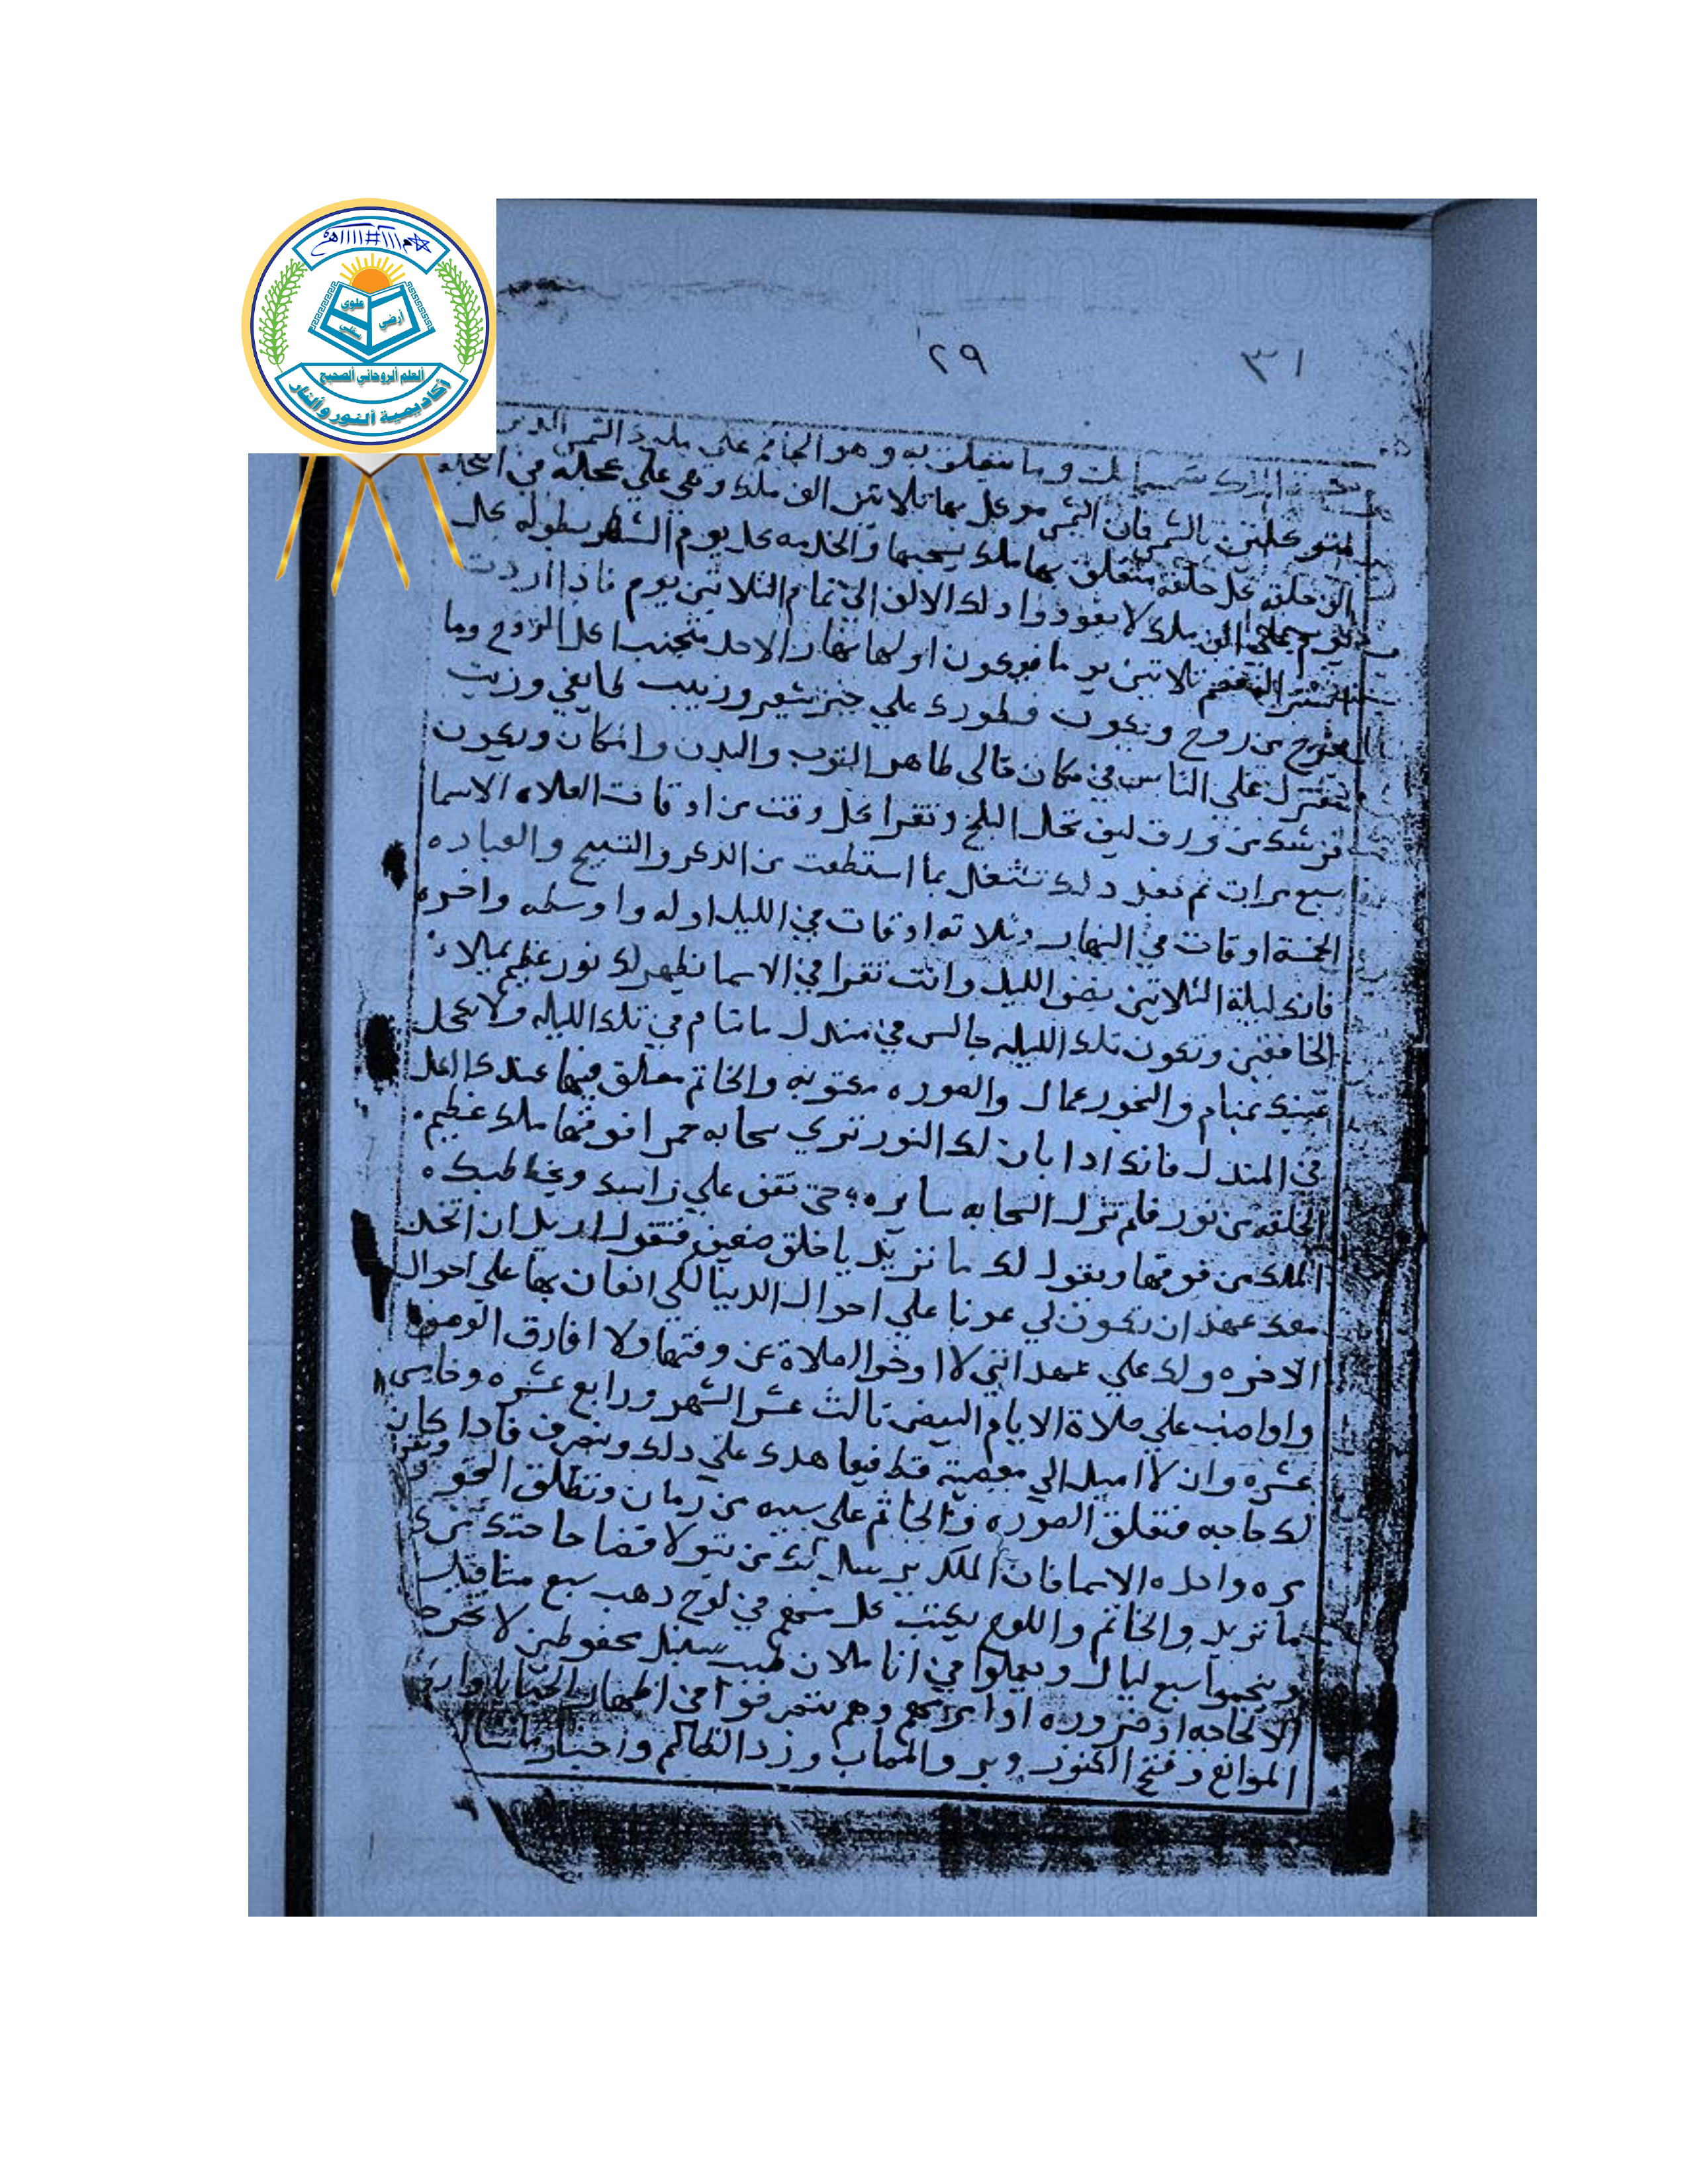 علوي
أرضي
سفلي
ألعلم ألروحاني ألصحيح
أكاديمية ألنور وألنار
٣١ ٢٩
وما يتعلق به وهو الحاكم علي
بالشمس فان الشمس موكل بها ثلاثين الف ملك وهي علي عجله في العجله
الف حلقه كل حلقه متعلق بها ملك يسحبها والخدمه كل يوم الشهر بطوله كل
يوم الف ملك لا يعودوا اولك الالف الي تمام الثلاثين يوم فاذا اردت
ثلاتين يوما ويكون اولها نهار الاحد متجنب اكل الروح وما
يخرج من روح ويكون فطورك علي خبز شعير وزبيب طايفي وزيت
وتعتزل علي الناس في مكان خالي طاهر الثوب والبدن والمكان ويكون
فرشك من ورق ليف نخل البلح وتقرا كل وقت من اوقات الصلاه الاسما
سبع مرات ثم بعد دلك تشتغل بما استطعت من الدكر والتسبيح والعباده
الخمسة اوقات في النهار وثلاثه اوقات في الليل اوله واوسطه واخره
فانك ليلة الثلاتين نصف الليل وانت تقرا في الاسما يظهر لك نور عظيم يملاء
الخافقين وتكون تلك الليله جالس في مندل ماتنام في تلك الليله ولا تكحل
عينك بمنام والبخور عمال والصوره مكتوبه والخاتم معلق فيها عندك
في المندل فانك ادا بان لك النور تري سحابه حمرا فوقها ملك عظيم
الخلقه من نور فلم تزل السحابه سايره حتي تقف علي راسك ويخاطبك
الملك من فوقها ويقول لك ما تريد يا خلق ضعيف فتقول اريد ان اتخد
معك عهد ان تكون لي عونا علي احوال الدنيا لكي اتعان بها علي احوال
الاخره ولك علي عهد انني لا اوخر الصلاة عن وقتها ولا افارق الوضو
واواضب علي صلاة الايام البيض تالت عشر الشهر ورابع عشره وخامس
عشره وان لا اميل الي معصية قط فيعاهدك علي دلك وينصرف فادا كان
لك حاجه فتعلق الصوره والخاتم علي سيبه من رمان وتطلق البخور وتقرا
مره واحده الاسما فان الملك يرسل لك من يتولا قضا حاجتك
ما تريد والخاتم واللوح يكتب كل منهم في لوح دهب سبع متاقيل
وينجموا سبع ليال ويعملوا في انا ملان طيب سنبل محفوظين لا تخرجهم
الا لحاجه او ضروره ادا وهم يتصرفوا في اظهار الخبايا
الموانع وفتح الكنوز ورد الظالم واحضار